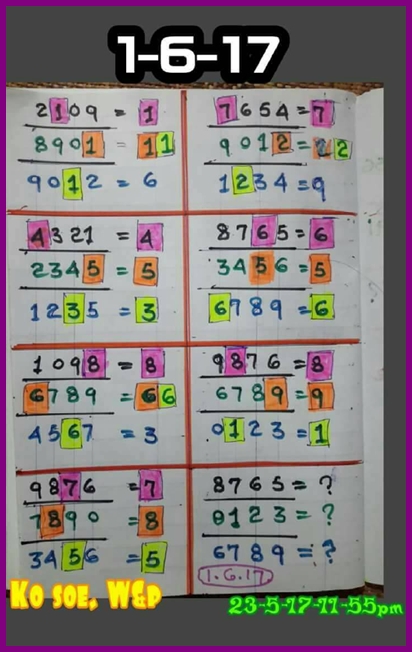 1-6-17
2109 = 1
8901 = 11
9012 = 6
7654 = 7
9012 = 22
1234 = 9
4321 = 4
2345 = 5
1235 = 3
8765 = 6
3456 = 5
6789 = 6
1098 = 8
6789 = 66
4567 = 3
9876 = 8
6789 = 9
0123 = 1
9876 = 7
7890 = 8
3456 = 5
8765 = ?
0123 = ?
6789 = ?
1.6.17
Ko soe, W&P
23-5-17-11-55pm